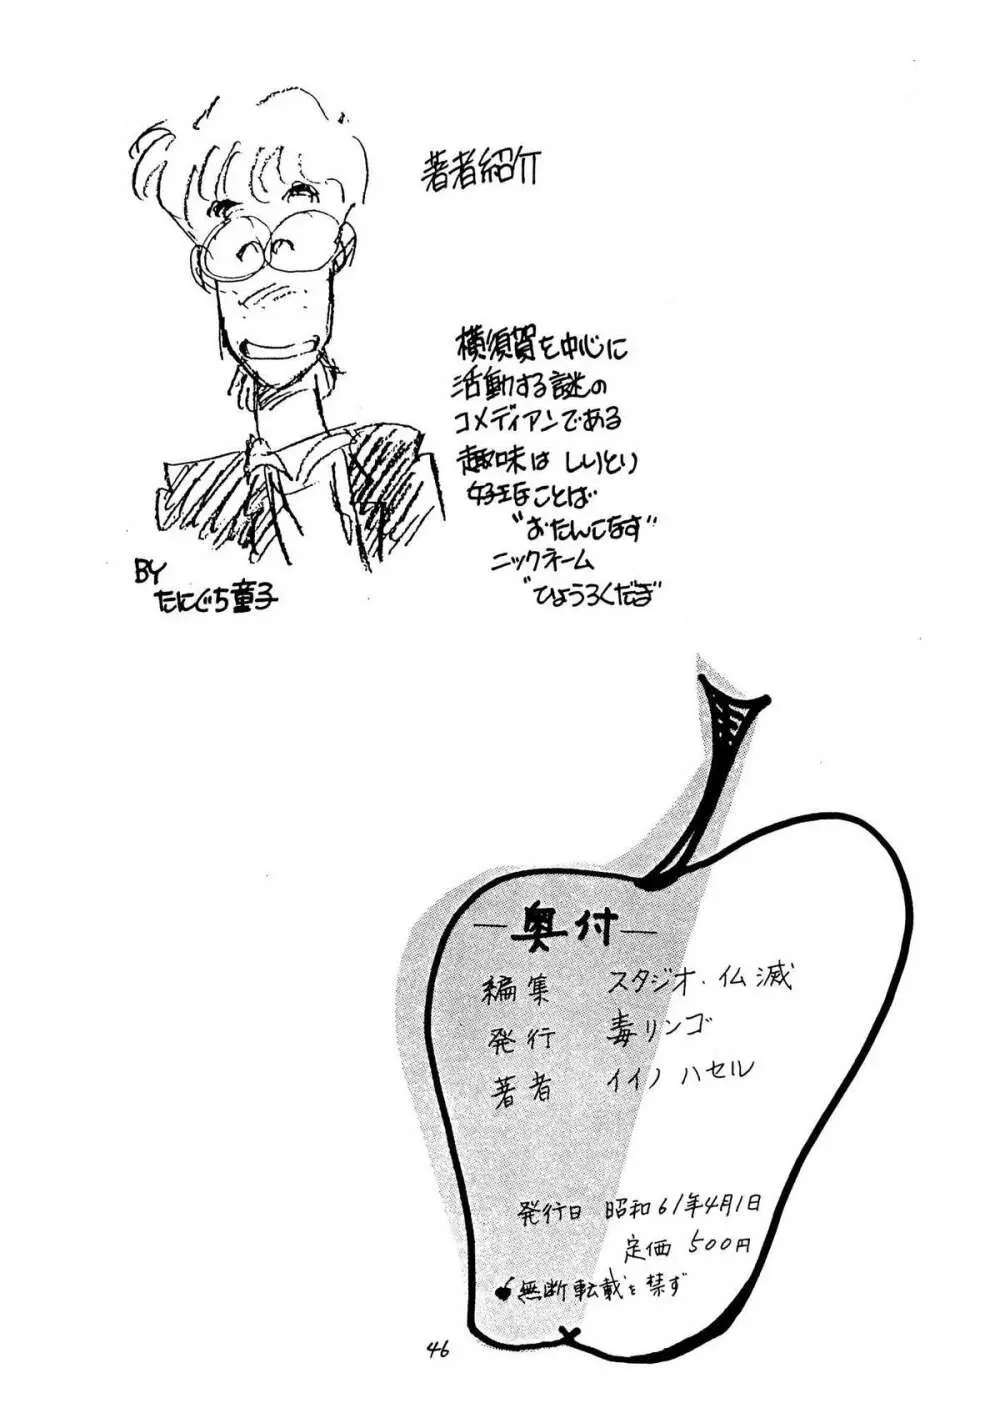 著者紹介
横須賀を中心に
活動する謎の
コメディアンである
趣味は しりとり
好きなことば
"おたんこなす"
ニックネーム
"ひょうろくだま"
BY
たにぐち童子
―奥付―
編集 スタジオ・仏滅
発行 毒リンゴ
著者 イイノハセル
発行日 昭和61年4月1日
定価 500円
無断転載を禁ず
46